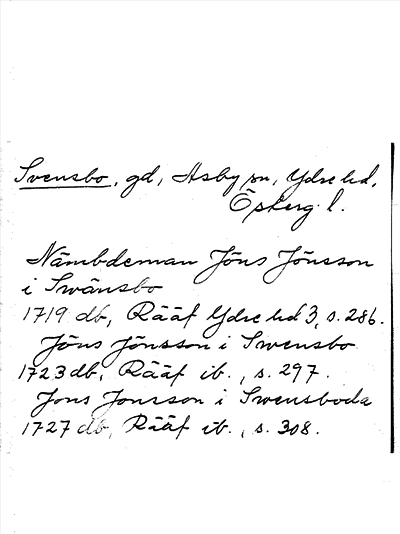 Svensbo, gd, Asby sn, Ydre hd,
Österg. l.
Nämbdeman Jöns Jönsson
i Swänsbo
1719 db, Rääf Ydre hd 3, s. 286.
Jöns Jönsson i Swensbo
1723 db, Rääf ib., s. 297.
Jons Jonsson i Swensboda
1727 db, Rääf ib., s. 308.